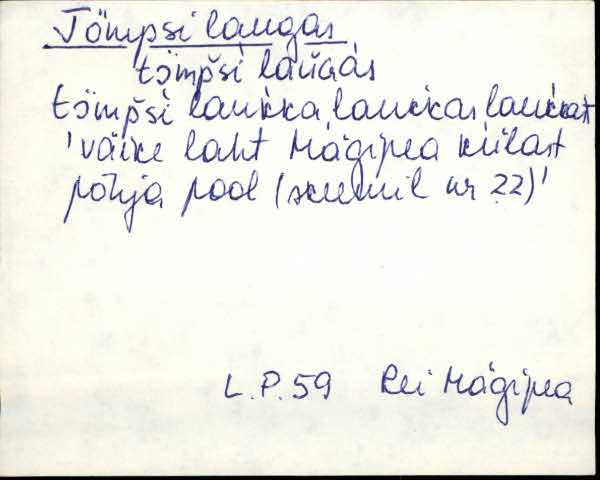 Tömpsi laugas
tömpši laŭgas
tömpši laukka laukkas laukkast
'väike laht Mägipea külast
põhja pool (skeemil nr 22)'
L.P.59 Rei Mägipea